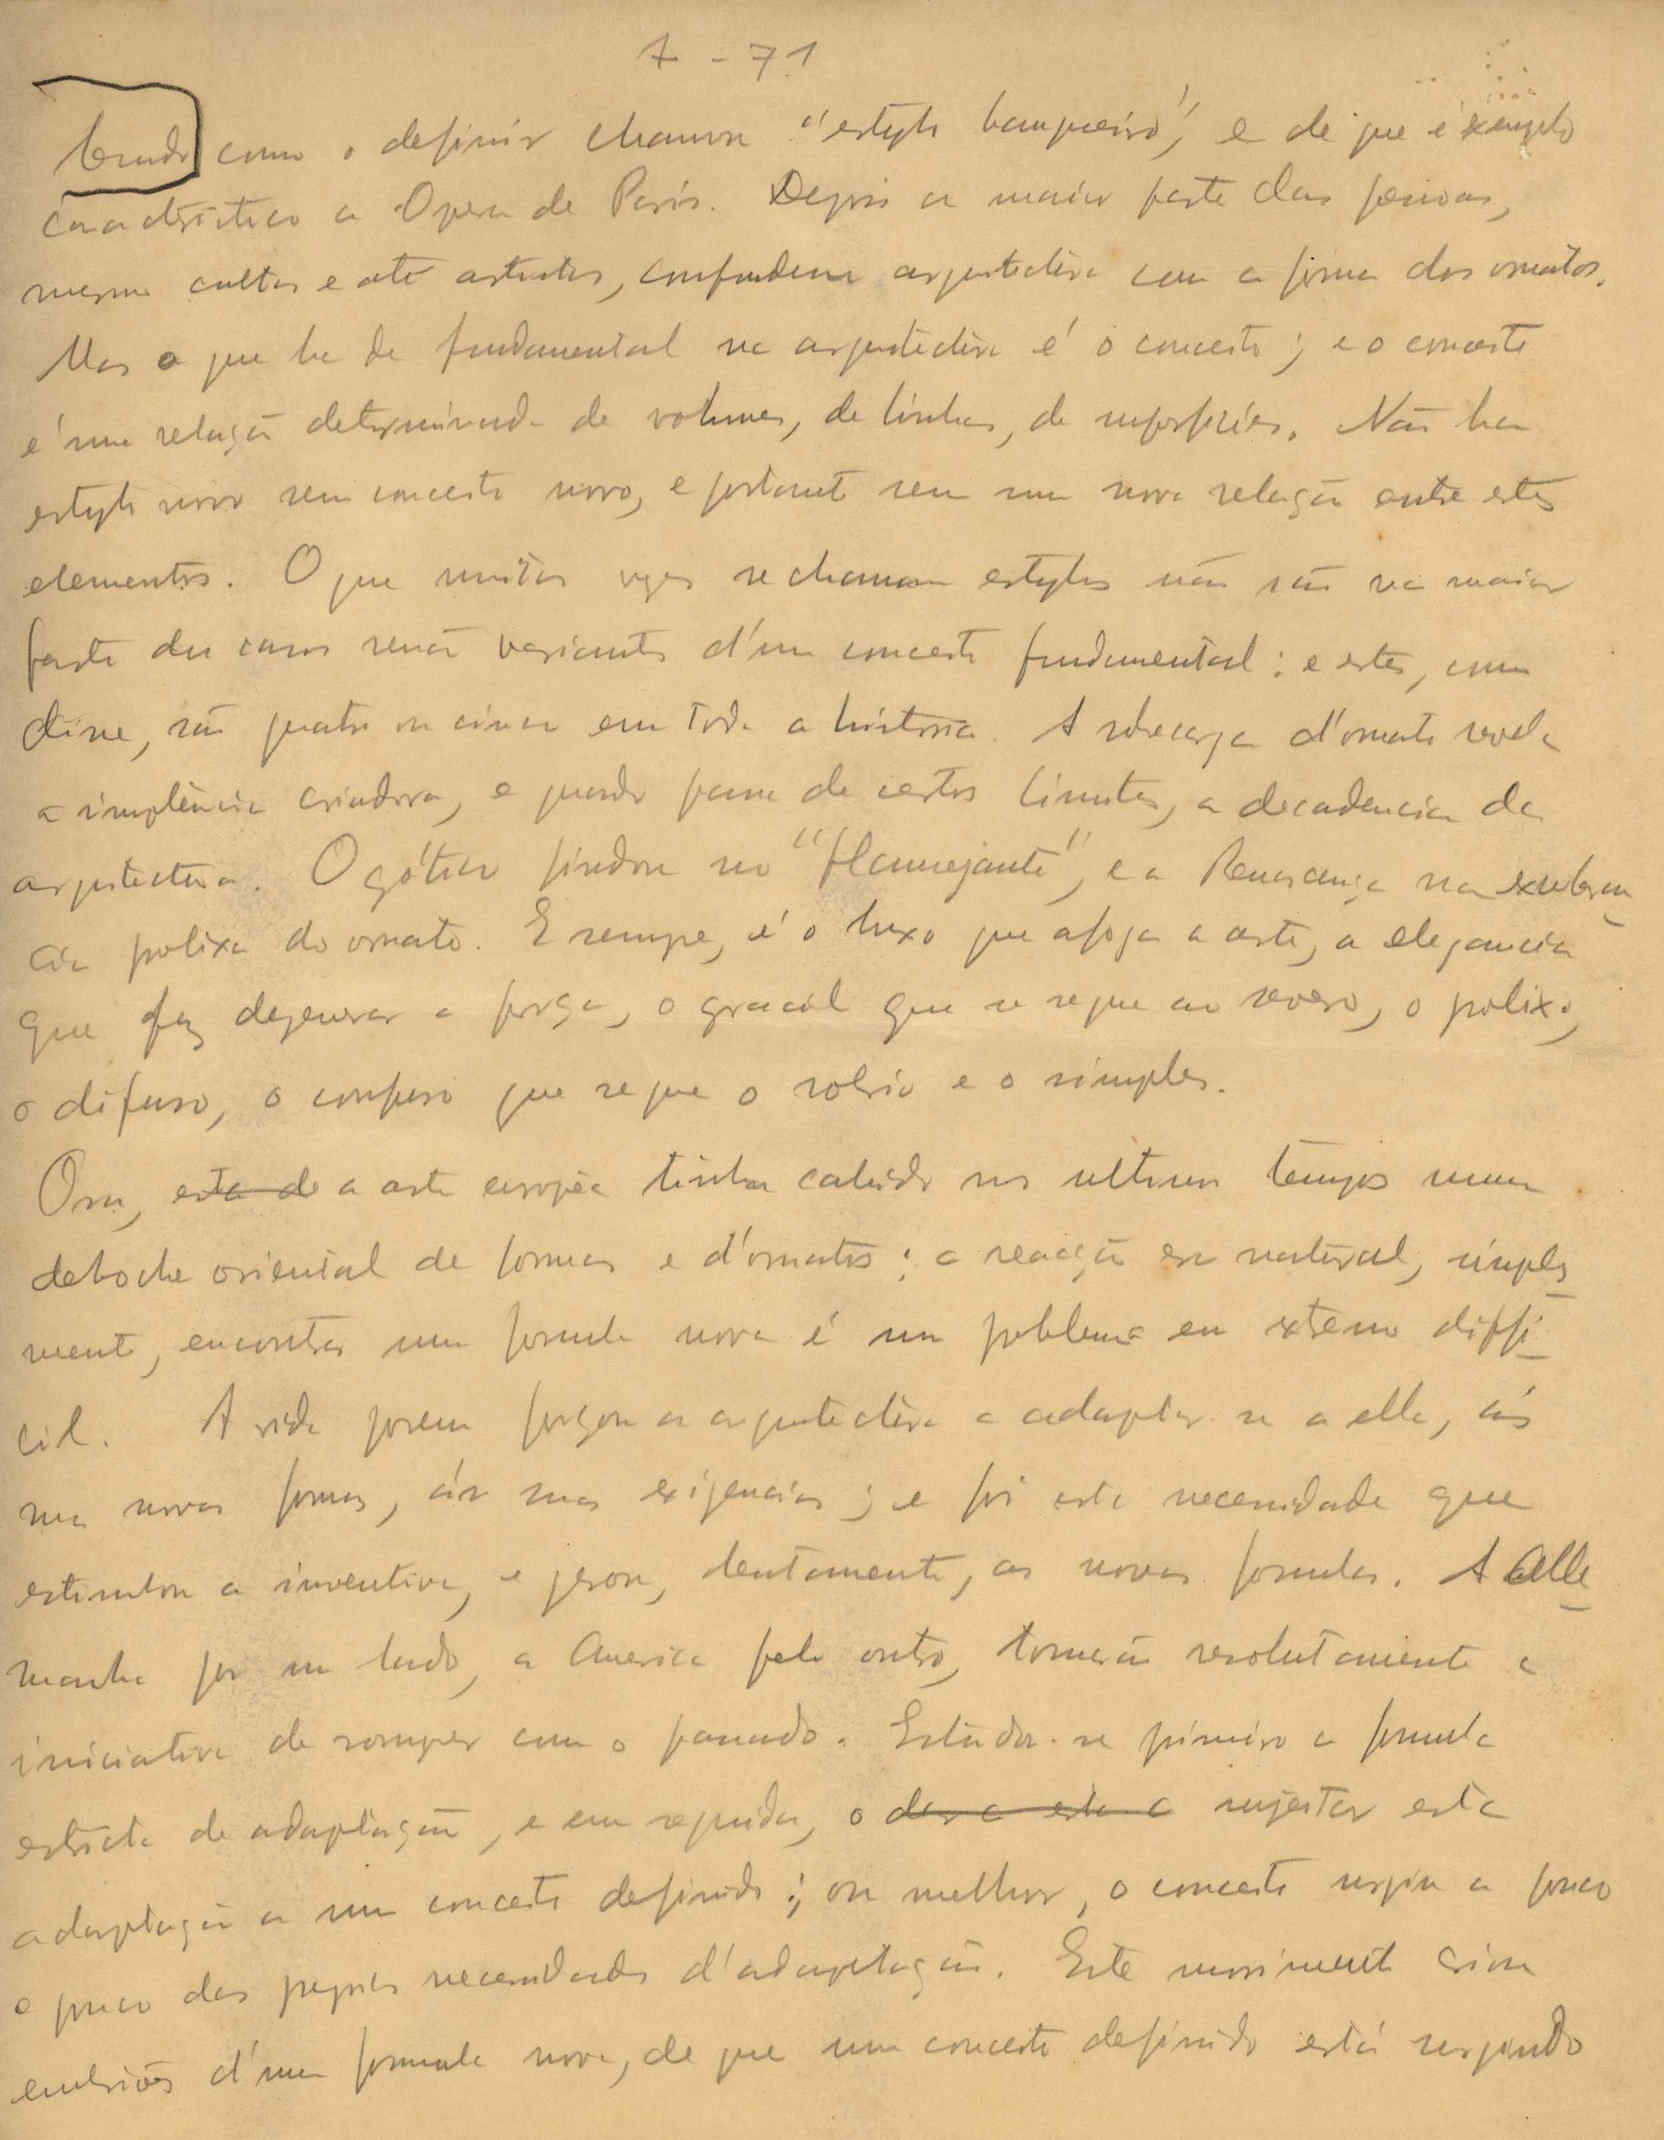 7 - 71
como o definir chamou "estylo banqueiro", e de que é exemplo
caracteristico a Opera de Paris. Depois a maior parte das pessoas,
mesmo cultas e até artistas, confundem arquitectura com a forma dos ornatos.
Mas o que ha de fundamental na arquitectura é o conceito; e o conceito
é uma relação determinada de volumes, de linhas, de superficies. Não ha
estylo novo sem conceito novo, e portanto sem uma nova relação entre estes
elementos. O que muitas vezes se chamam estylos não são na maior
parte dos casos senão variantes d'um conceito fundamental: e estes, como
disse, são quatro ou cinco em toda a historia. A sobrecarga d'ornato revela
a impotência criadora, e quando passa de certos limites, a decadencia da
arquitectura. O gótico findou no "flamejante", e a Renascença na exuberan
cia prolixa do ornato. E sempre, é o luxo que afoga a arte, a elegancia
que faz degenerar a força, o gracil que se segue ao severo, o prolixo,
o difuso, o confuso que segue o sobrio e o simples.
Ora, esta do a arte europêa tinha cahido nos ultimos tempos numa
deboche oriental de formas e d'ornatos; a reacção era natural, simples
mente, encontrar uma formula nova é um problema em extremo diffi
cil. A vida porem forçou a arquitectura a adaptar-se a ella, ás
suas novas formas, ás suas exigencias; e foi esta necessidade que
estimulou a inventiva, e gerou, lentamente, as novas formulas. A Alle
manha por um lado, a America pelo outro, tomarão resolutamente a
iniciativa de romper com o passado. Estudou-se primeiro a formula
estricta de adaptação, e em seguida, o dar a esta a sujeitar esta
adaptação a um conceito definido; ou melhor, o conceito surgiu a pouco
e pouco das proprias necessidades d'adaptação. Este movimento criou
embriões d'uma formula nova, de que um conceito definido está surgindo